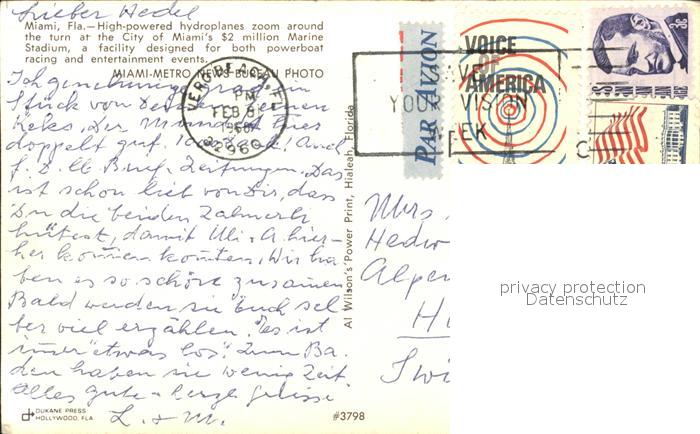 Lieber Hedel
Miami, Fla.—High-powered hydroplanes zoom around
the turn at the City of Miami's $2 million Marine
Stadium, a facility designed for both powerboat
racing and entertainment events.
MIAMI-METRO NEWS BUREAU PHOTO
Ich
Stück von
Keks, Der
doppelt gut. Auch
f. D. lb. Brief Zeitungen. Das
ist schon lieb von Dir, dass
Du die beiden
hütest, damit Uli + A. hier-
her kommen konnten. Wir ha-
ben es so schön zusamen
Bald werden sie Euch sel-
ber viel erzählen. Es ist
imer "etwas los". Zum Ba-
den haben sie wenig Zeit.
Alles gute + herzl. grüsse
L. + M.
DUKANE PRESS
HOLLYWOOD, FLA.
Al Wilson's Power Print, Hialeah, Florida
#3798
VERO BEACH, FL
PM
FEB 5
32960
SAVE
YOUR VISION
WEEK
PAR AVION
VOICE
OF
AMERICA
Mrs.
Hedw
Alpen
H
Swi
privacy protection
Datenschutz